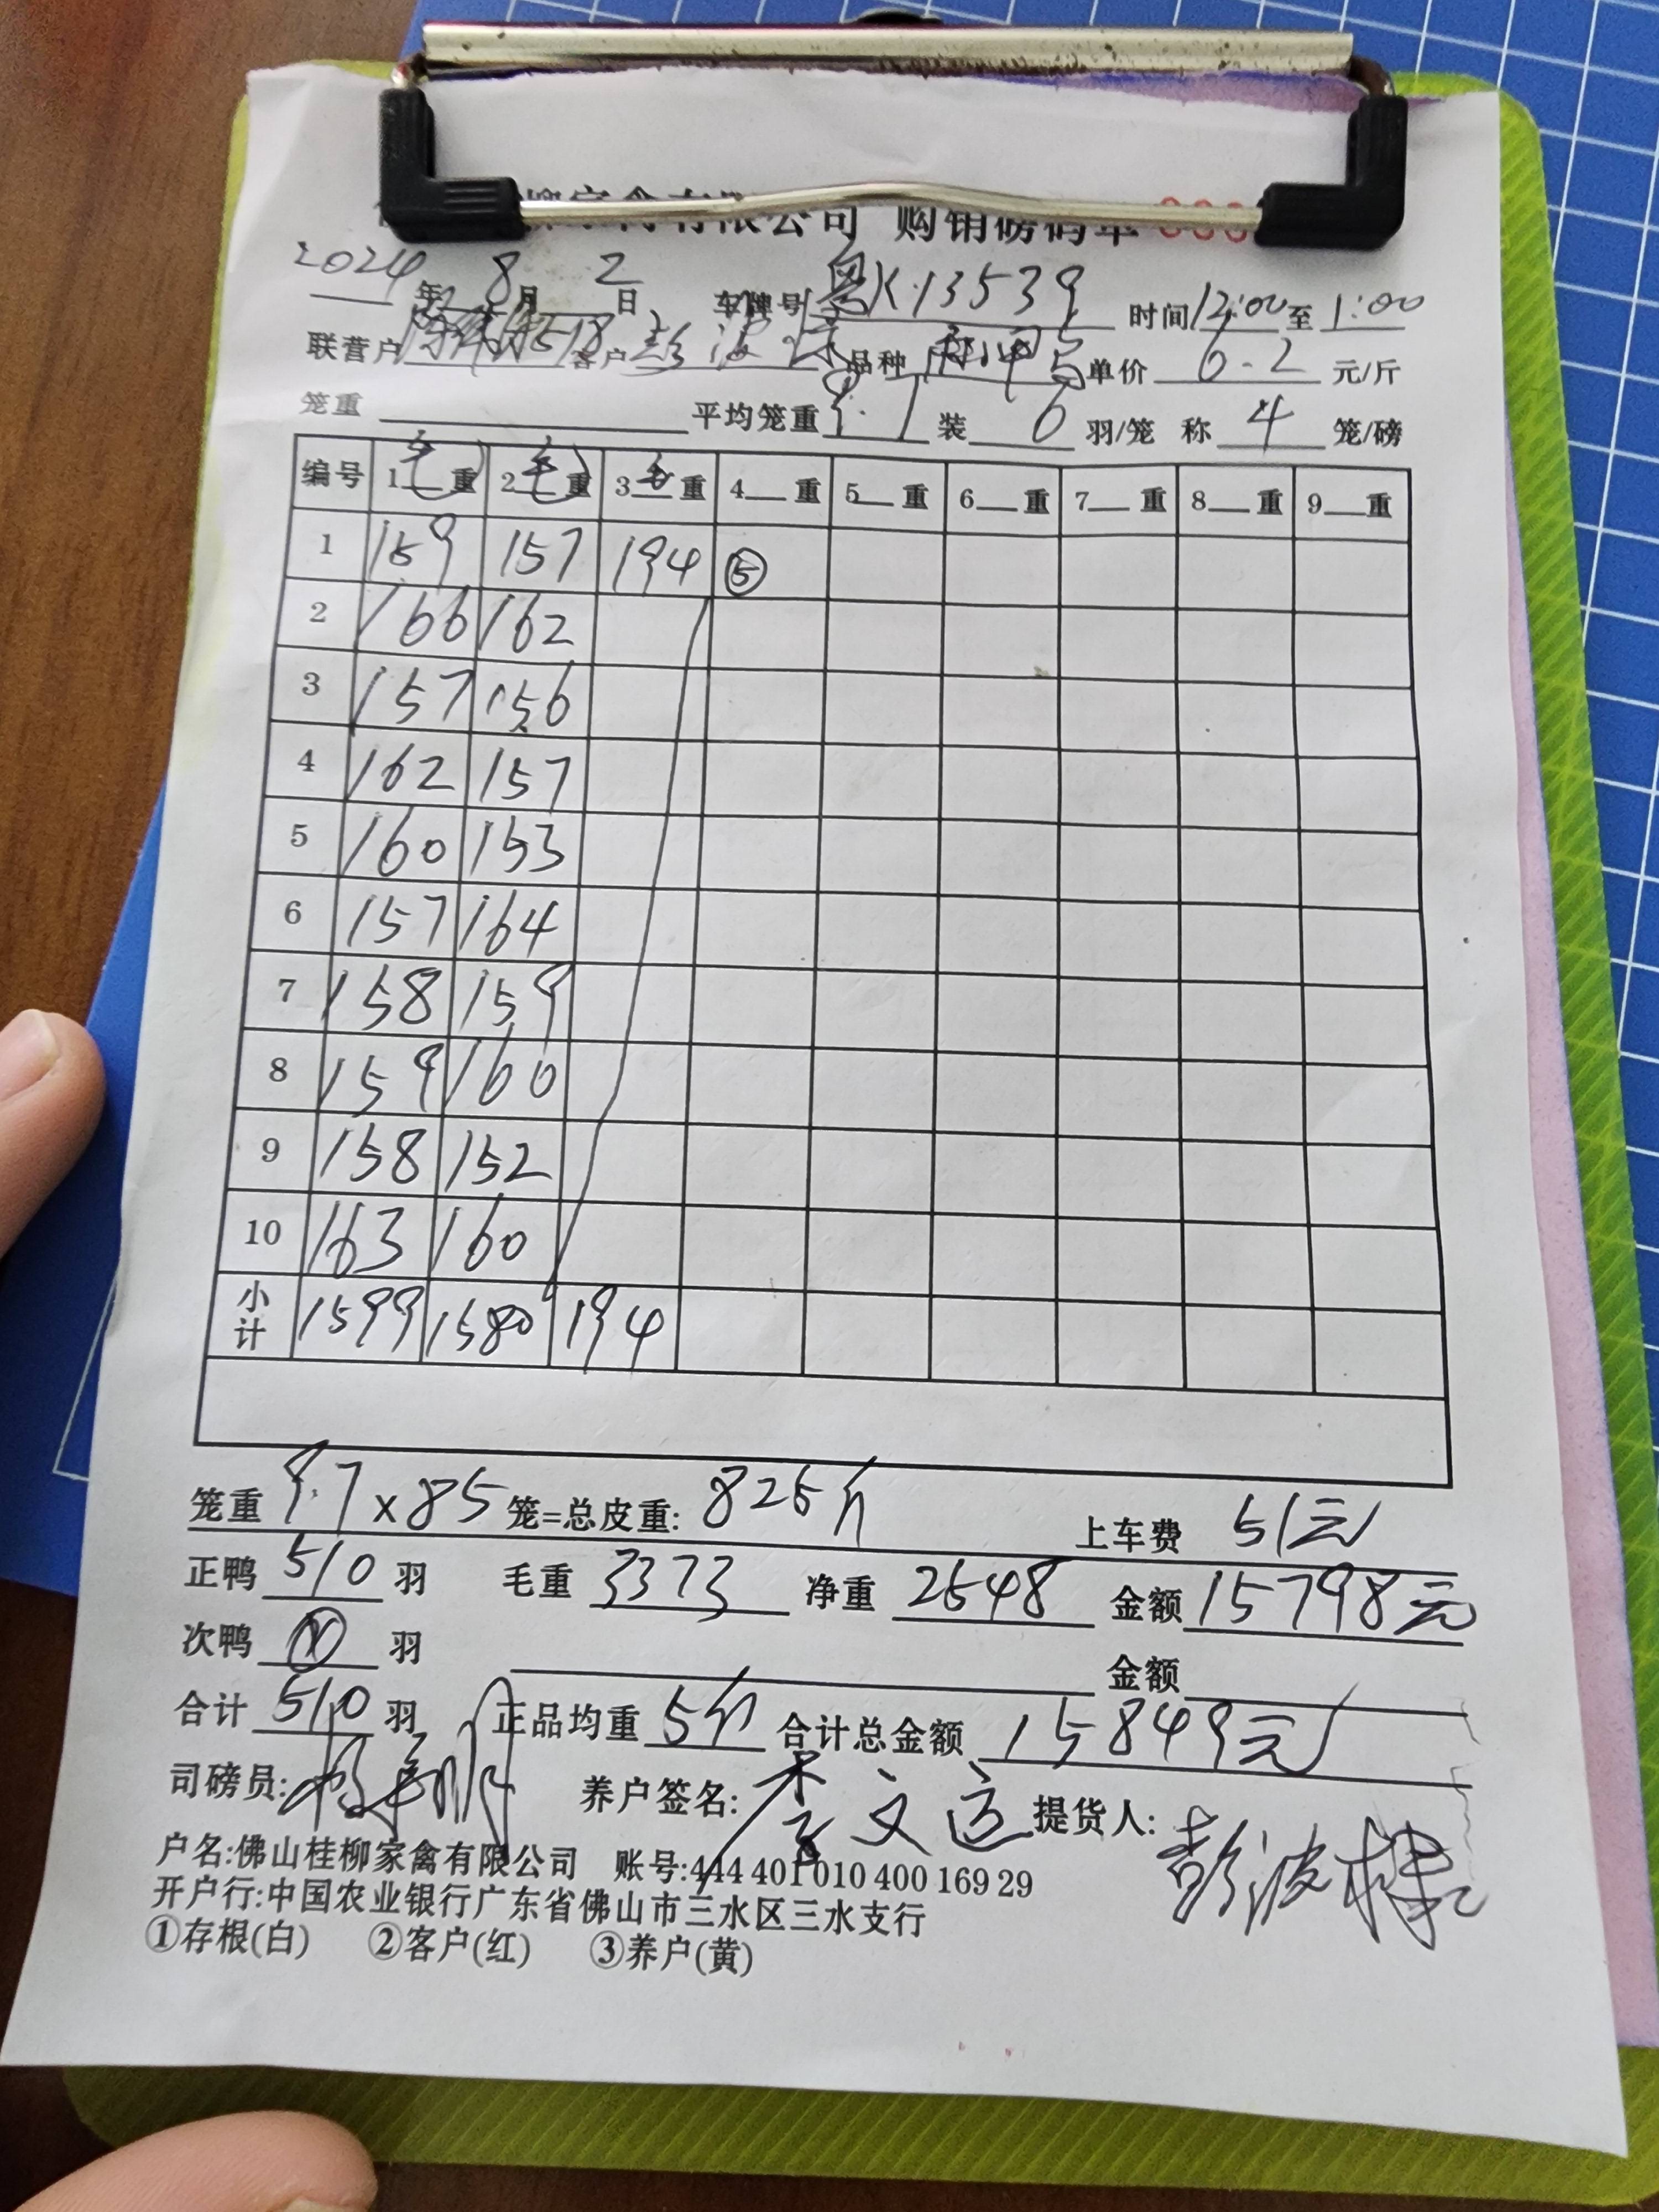 柳家禽有限公司 购销磅码单
2024年 8月 2日 车牌号 粤K·13539 时间 12:00 至 1:00
联营户 客户 彭波 品种 单价 6.2 元/斤
笼重 平均笼重 9.7 装 6 羽/笼 称 4 笼/磅
编号 1毛重 2毛重 3毛重 4 重 5 重 6 重 7 重 8 重 9 重
1 159 157 194 ⑤
2 166 162
3 157 156
4 162 157
5 160 153
6 157 164
7 158 159
8 159 160
9 158 152
10 163 160
小计 1599 1580 194
笼重 9.7 x 85 笼=总皮重: 825斤 上车费 51元
正鸭 510 羽 毛重 3373 净重 2548 金额 15798元
次鸭 羽 金额
合计 510 羽 正品均重 5斤 合计总金额 15849元
司磅员: 养户签名: 李文运 提货人: 彭波棟
户名:佛山桂柳家禽有限公司 账号:444 401 010 400 169 29
开户行:中国农业银行广东省佛山市三水区三水支行
①存根(白) ②客户(红) ③养户(黄)